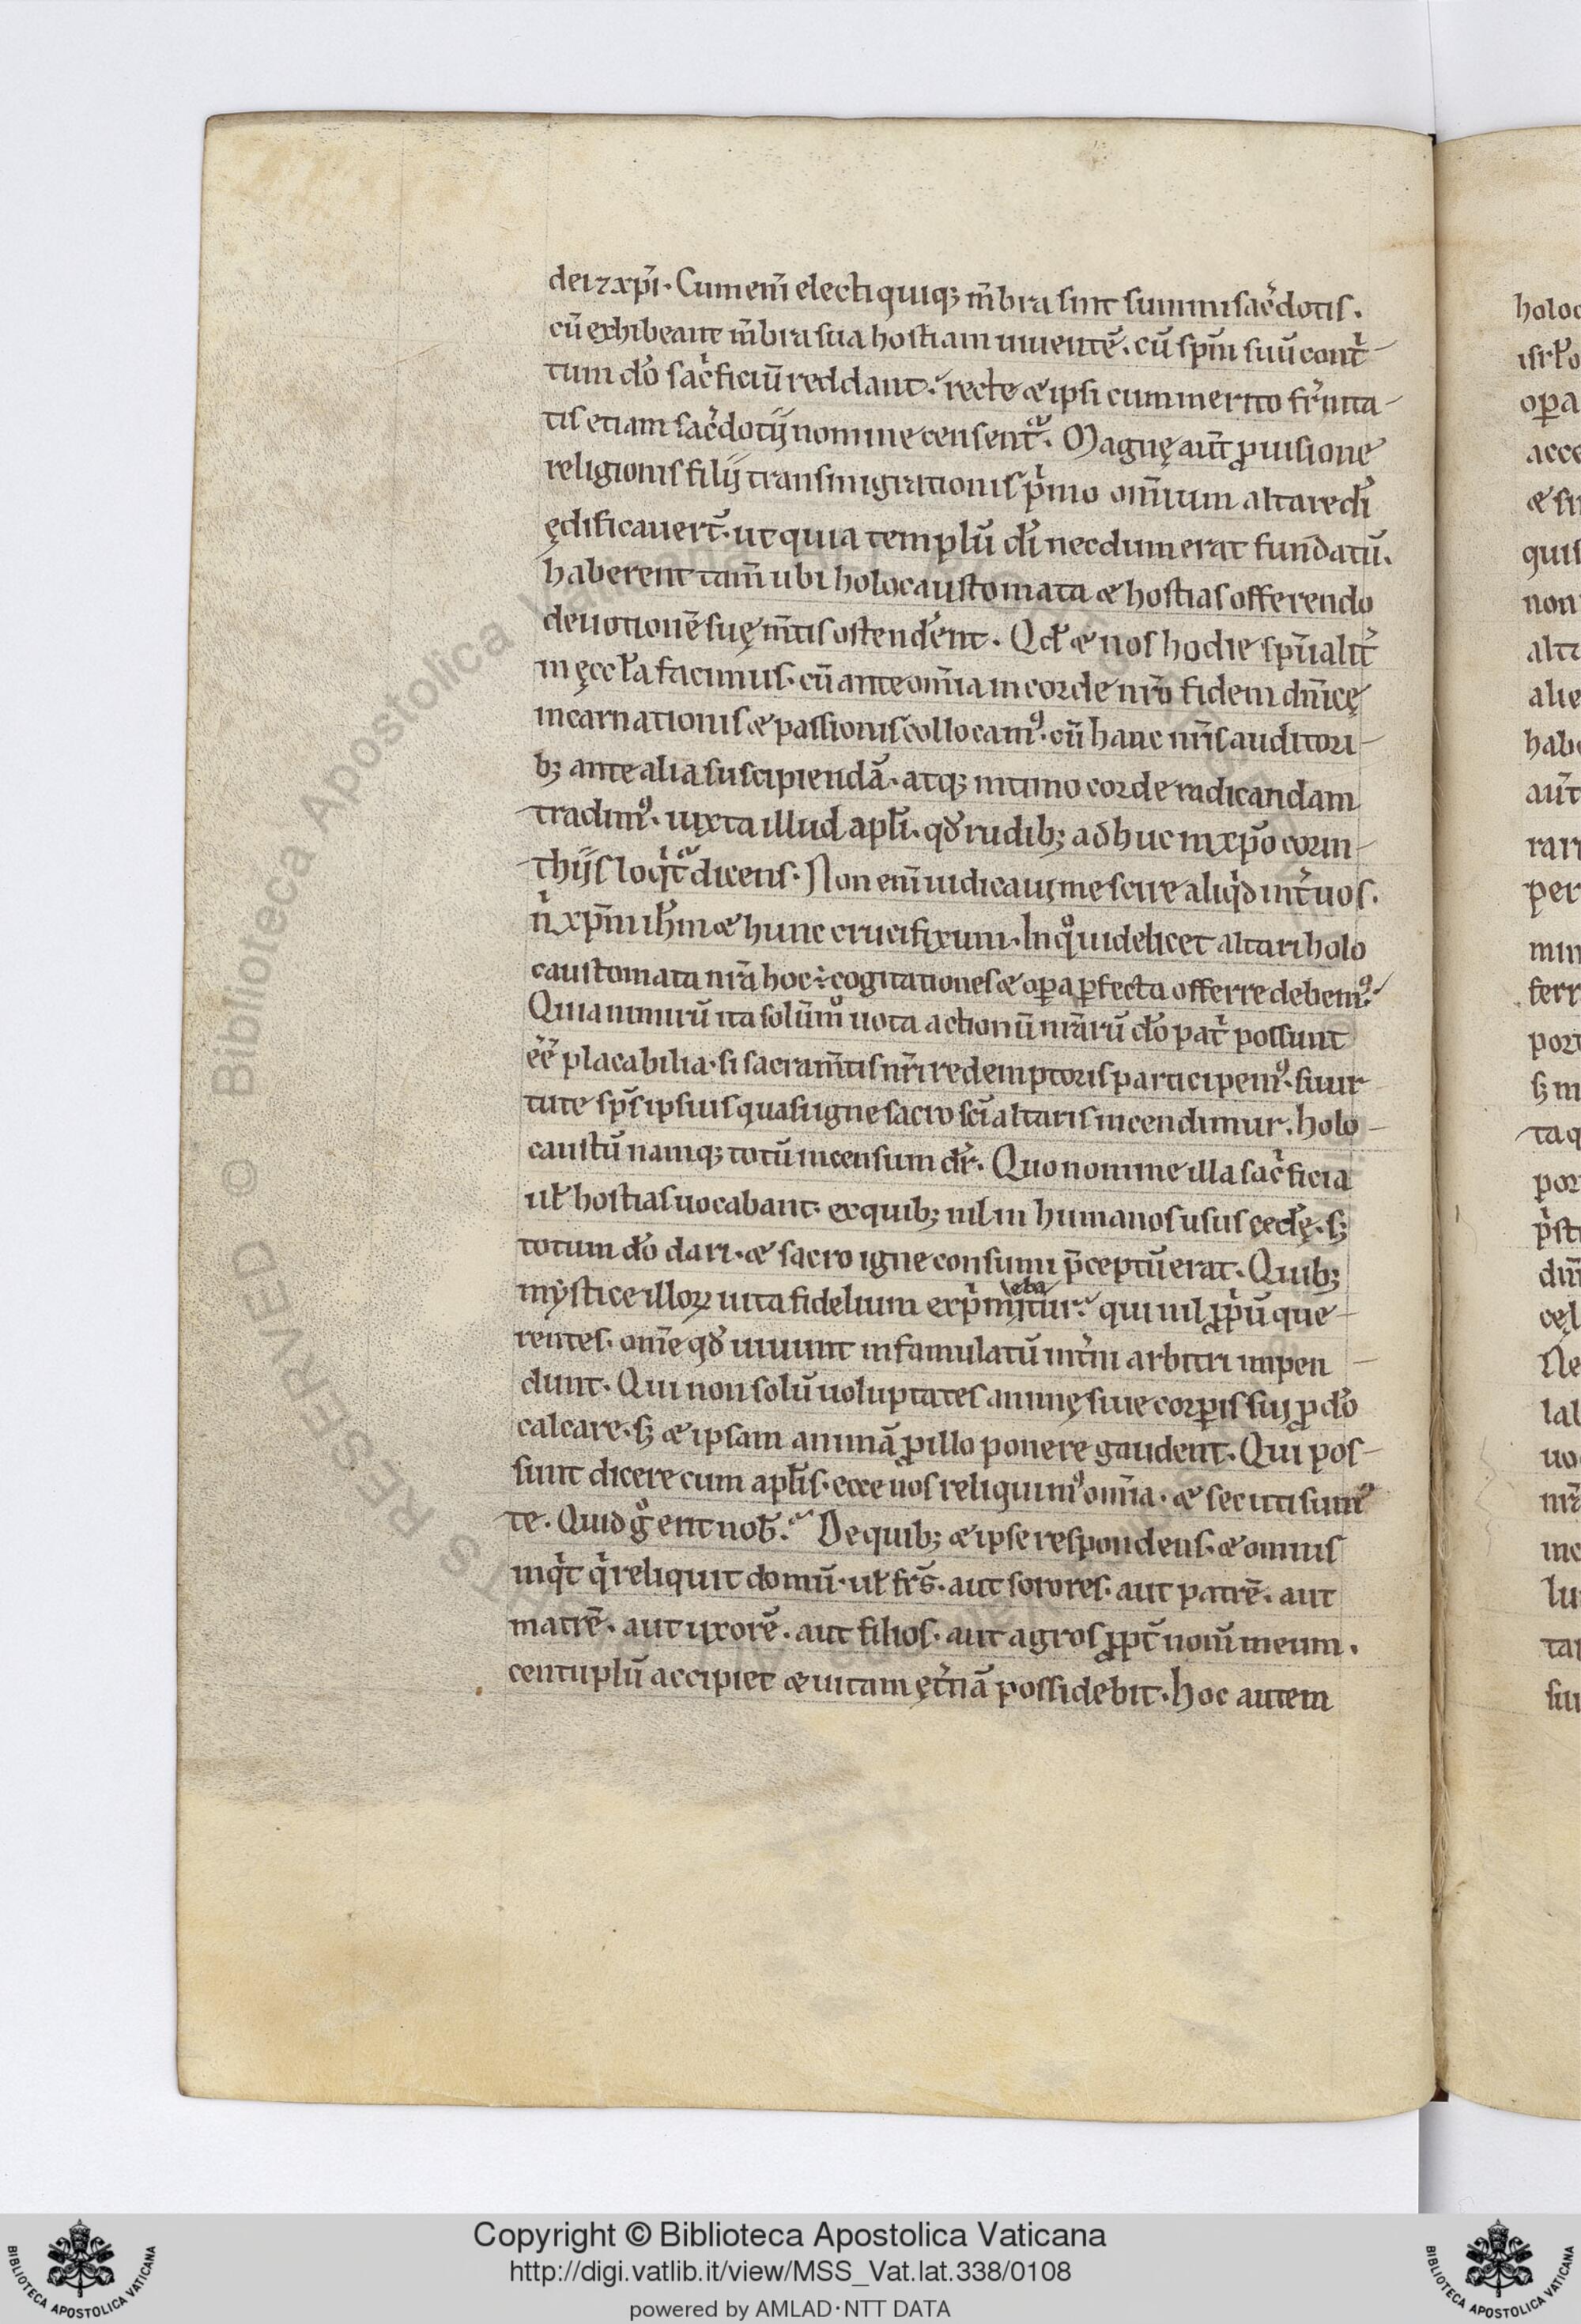 dei ⁊ xp̄i. Cum enī electi quiq; m̄bra sint summi sac̄dotis.
cū exhibeant m̄bra sua hostiam uiuentē. cū spm̄ suū cont̄
tum dō sac̄ficiū reddant. recte & ipsi cum merito fr̄nita
tis etiam sac̄dotij nomine censent᷑. Magnę aut̄ ꝓuisione
religionis filij transmigrationis p̄mo omīum altare dī
ędificauer̄t. ut quia templū dī necdum erat fundatū.
haberent tam̄ ubi holocaustomata & hostias offerendo
deuotionē suę m̄tis ostendēnt. Qđ & nos hodie spūalit̄
in ęccła facimus. cū ante om̄ia in corde nr̄o fidem dn̄icę
incarnationis & passionis collocamꝰ. cū hanc nr̄is auditori
b; ante alia suscipiendā. atq; intimo corde radicandam
tradimꝰ. iuxta illud apłi. qđ rudib; adhuc in xp̄o corin
thijs loqt̄᷑ dicens. Non enī iudicaui me scire aliqd int̄ uos.
n̄ xp̄m ihm̄ & hunc crucifixum. In qͦ uidelicet altari holo
caustomata nr̄a hoc ÷ cogitationes & oꝑa ꝑfecta offerre debemꝰ.
Quia nimirū ita solūmͦ uota actionū nr̄arū dō pat̄ possunt
ēē placabilia. si sacram̄tis nr̄i redemptoris participemꝰ. si uir
tute sp̄s ipsius quasi igne sacro scī altaris incendimur. holo
caustū namq; totū incensum dr̄. Quo nomine illa sac̄ficia
uł hostias uocabant. ex quib; nil in humanos usus cedę. s;
totum dō dari. & sacro igne consumi p̄ceptū erat. Quib;
mystice illoꝝ uita fidelium exp̄mitur. eba qui nil ꝓpū que
rentes. om̄e qđ uiuunt in famulatū int̄ni arbitri impen
dunt. Qui non solū uoluptates animę siue corꝑis sui ꝓ dō
calcare. s; & ipsam animā ꝓ illo ponere gaudent. Qui pos
sunt dicere cum apłis. ecce nos reliquimꝰ om̄ia. & secuti sumꝰ
te. Quid gͦ erit nob̄. De quib; & ipse respondens. & omnis
inqt̄ q̄ reliquit domū. uł fr̄s. aut sorores. aut patrē. aut
matrē. aut uxorē. aut filios. aut agros ꝓpt̄ nom̄ meum.
centuplū accipiet & uitam ęt̄nā possidebit. hoc autem
© Biblioteca Apostolica Vaticana
Copyright © Biblioteca Apostolica Vaticana
http://digi.vatlib.it/view/MSS_Vat.lat.338/0108
powered by AMLAD·NTT DATA
BIBLIOTECA APOSTOLICA VATICANA
BIBLIOTECA APOSTOLICA VATICANA